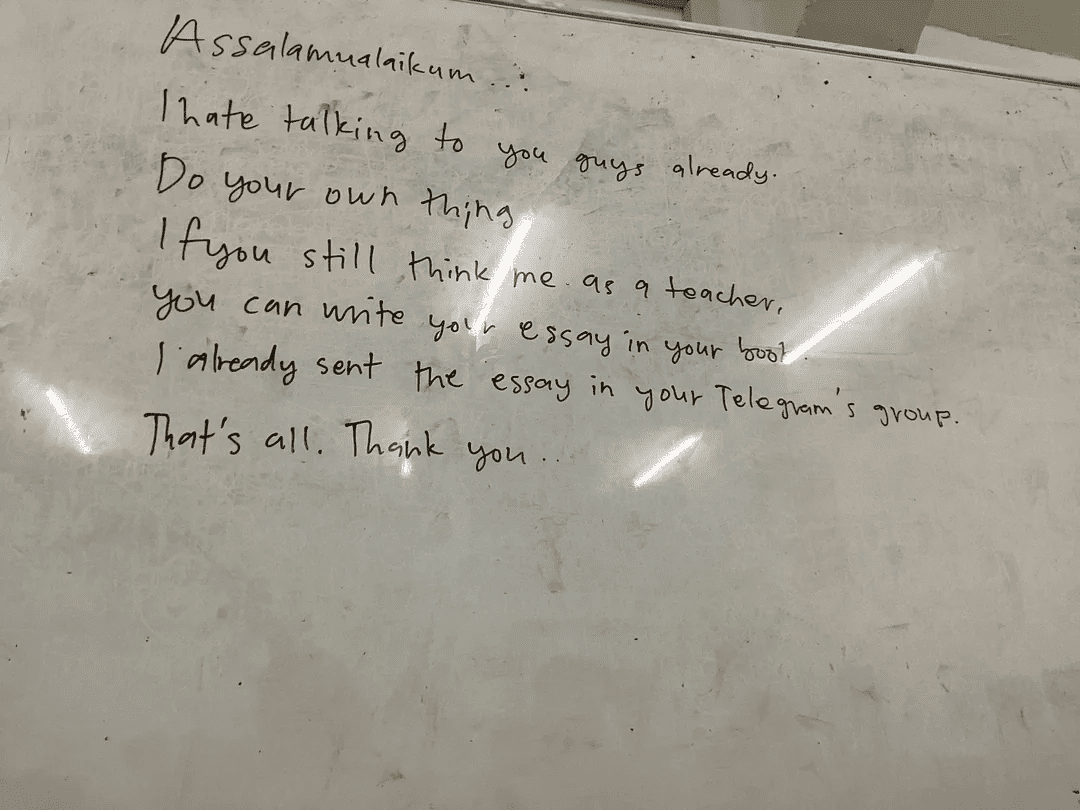 Assalamualaikum...
I hate talking to you guys already.
Do your own thing
If you still think me as a teacher,
you can write your essay in your book.
I already sent the essay in your Telegram's group.
That's all. Thank you..